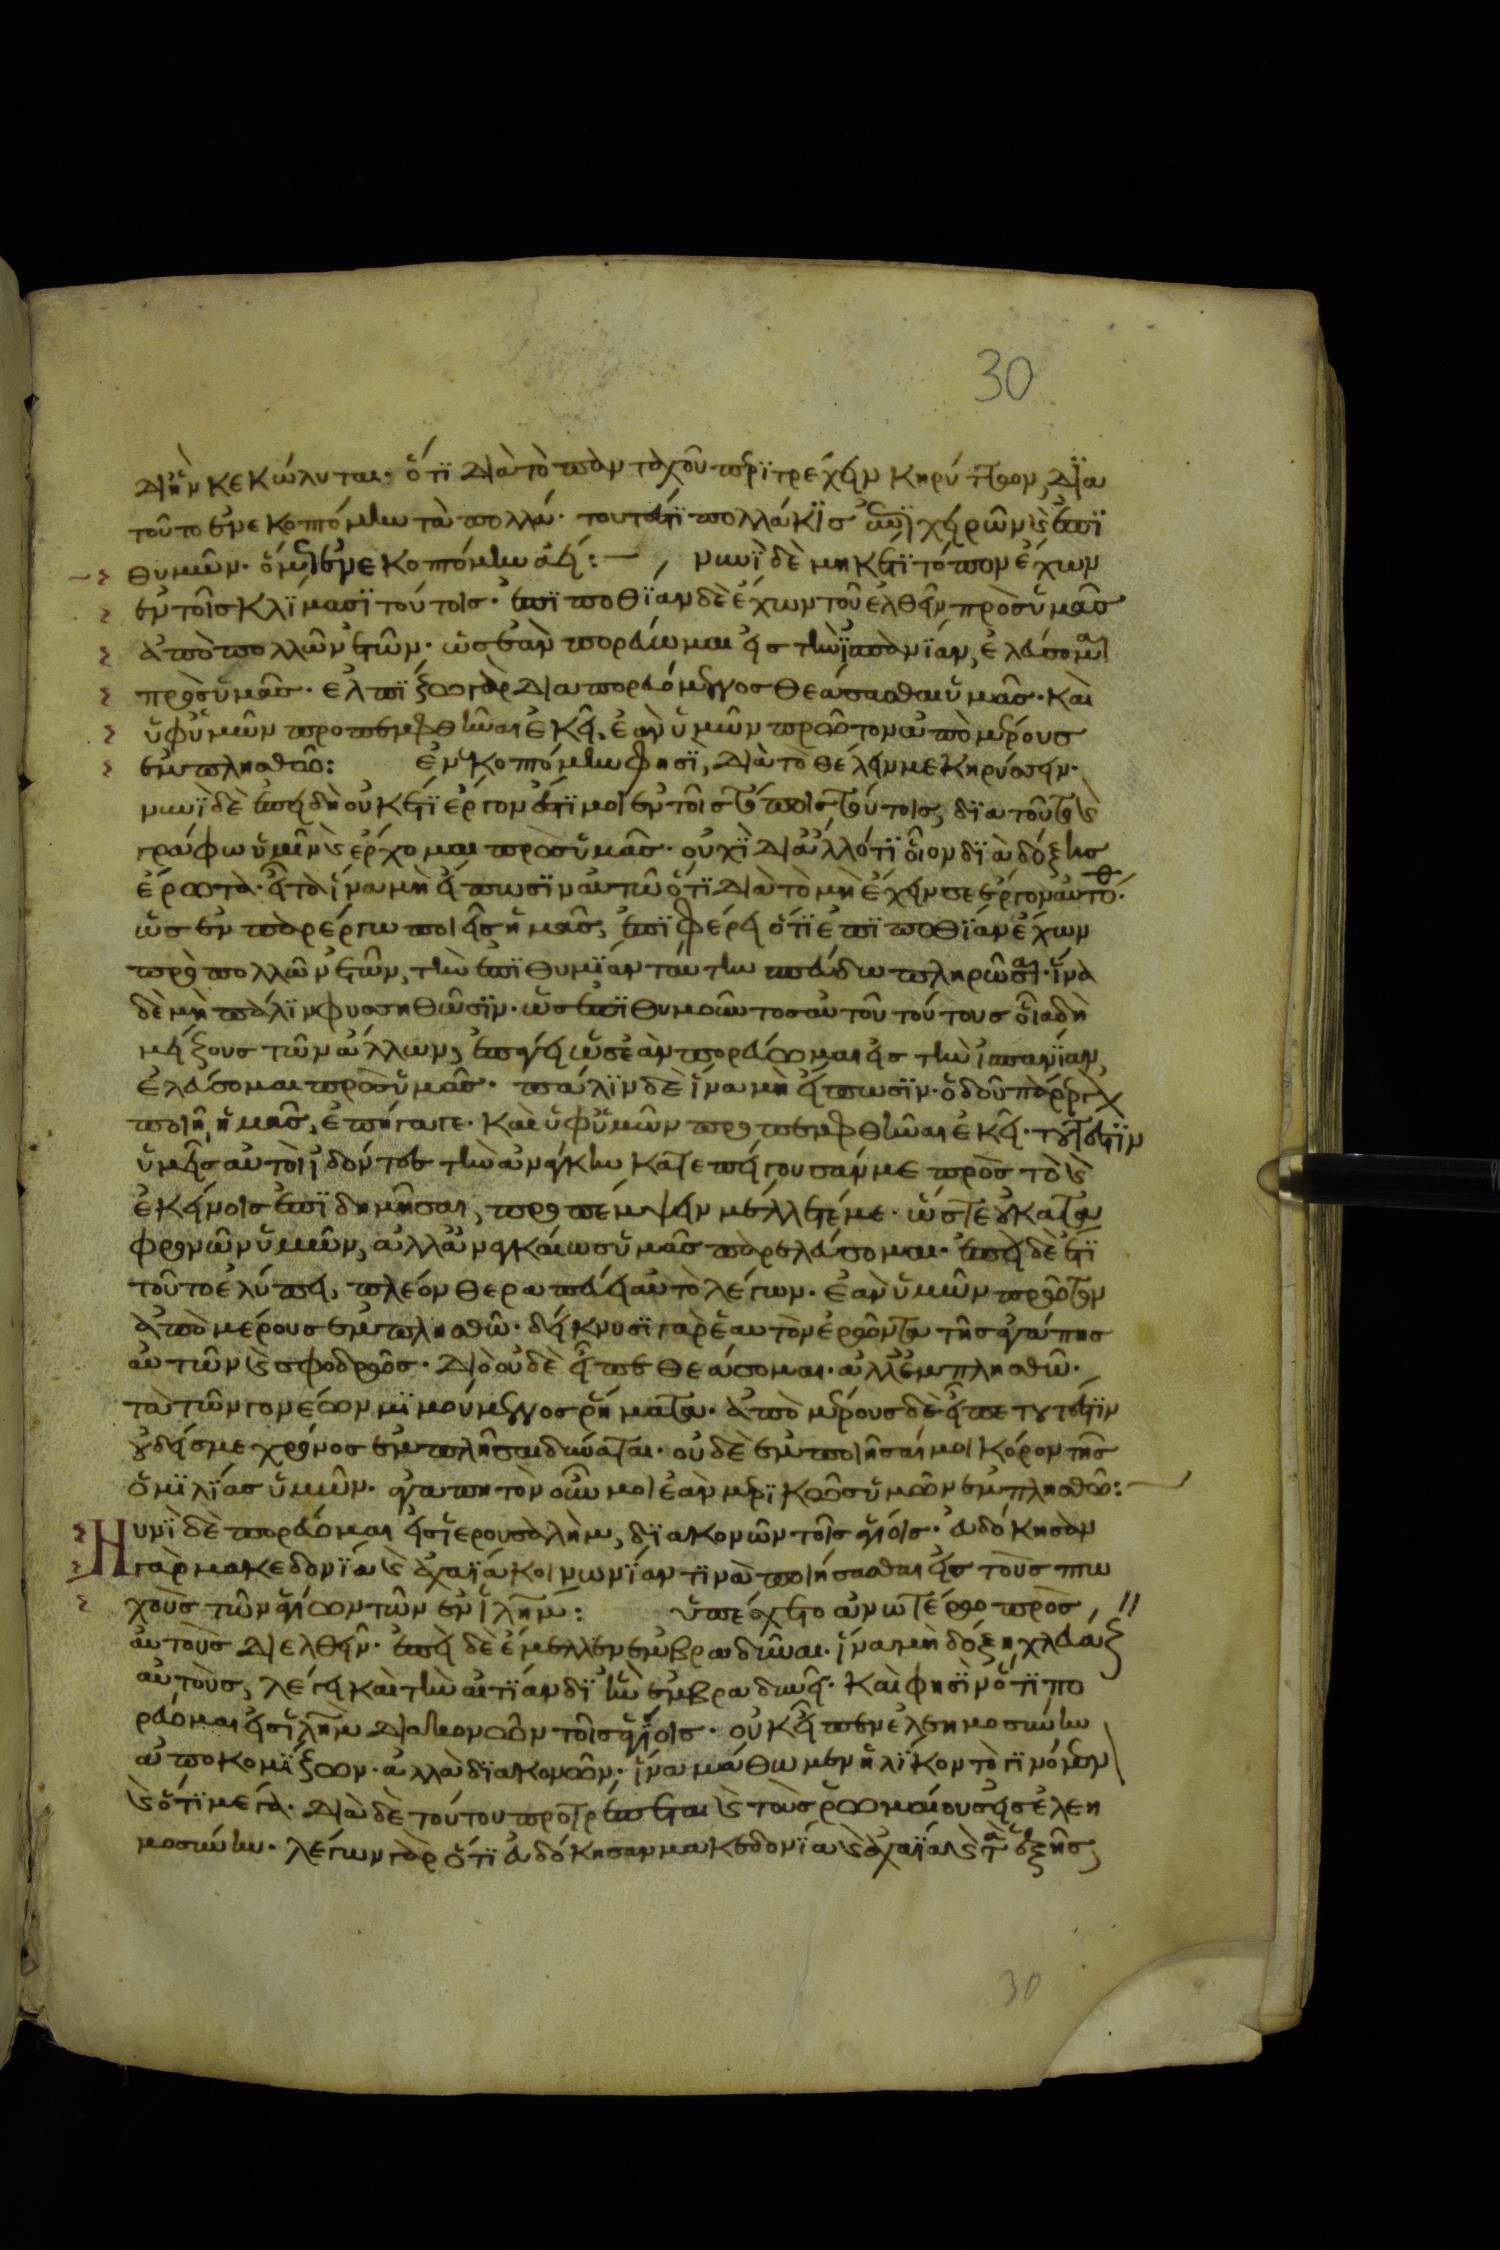 30
δι' ἣν κεκώλυται· ὅτι διὰ τὸ πανταχοῦ περιτρέχειν κηρύττων, διὰ
τοῦτο ἐνεκοπτόμην τὰ πολλά· τουτέστι πολλάκις ἐπιχειρῶν ϗ ἐπι
θυμῶν· ὅμως ἐνεκοπτόμην ἀεί: νυνὶ δὲ μηκέτι τόπον ἔχων
ἐν τοῖς κλίμασι τούτοις· ἐπιποθίαν δὲ ἔχων τοῦ ἐλθεῖν πρὸς ὑμᾶς
ἀπὸ πολλῶν ἐτῶν· ὡς ἐὰν πορεύωμαι εἰς τὴν ἱσπανίαν, ἐλεύσομαι
πρὸς ὑμᾶς· ἐλπίζω γὰρ διαπορευόμενος θεάσασθαι ὑμᾶς· καὶ
ὑφ' ὑμῶν προπεμφθῆναι ἐκεῖ, ἐὰν ὑμῶν πρῶτον ἀπὸ μέρους
ἐμπλησθῶ: ἐνεκοπτόμην φησὶ, διὰ τὸ θέλειν με κηρύσσειν·
νυνὶ δὲ ἐπειδὴ οὐκέτι ἔργον ἐστί μοι ἐν τοῖς τόποις τούτοις, διὰ τοῦτο ϗ
γράφω ὑμῖν ϗ ἔρχομαι πρὸς ὑμᾶς· οὐχὶ δι' ἄλλό τι οἷον διὰ δόξης
ἔρωτα· εἶτα ἵνα μὴ εἴπωσιν αὐτῶ ὅτι διὰ τὸ μὴ ἔχειν σε ἔργον αὐτόθι·
ὡς ἐν παρέργω ποιεῖς ἡμᾶς, ἐπιφέρει ὅτι ἐπιποθίαν ἔχων
πρὸ πολλῶν ἐτῶν, τὴν ἐπιθυμίαν ταύτην σπεύδω πληρῶσαι· ἵνα
δὲ μὴ πάλιν φυσηθῶσιν· ὡς ἐπιθυμοῦντος αὐτοῦ τούτους οἷα δὴ
μείζους τῶν ἄλλων, ἐπάγει ὡς ἐὰν πορεύωμαι εἰς τὴν ἱσπανίαν,
ἐλεύσομαι πρὸς ὑμᾶς· πάλιν δὲ ἵνα μὴ εἴπωσιν· ὁδοῦ πάρεργον
ποιῆ ἡμᾶς, ἐπήγαγε· καὶ ὑφ' ὑμῶν προπεμφθῆναι ἐκεῖ· τουτέστιν
ὑμεῖς αὐτοὶ ἰδόντες τὴν ἀνάγκην κατεπείγουσάν με πρὸς τὸ ϗ
ἐκείνοις ἐπιδημῆσαι, προπέμψειν μέλλετέ με· ὥστε οὐ κατα
φρονῶν ὑμῶν, ἀλλ' ἀναγκαίως ὑμᾶς παρελεύσομαι· ἐπεὶ δὲ ἔτι
τοῦτο ἐλύπει, πλέον θεραπεύει αὐτὸ λέγων· ἐὰν ὑμῶν πρῶτον
ἀπὸ μέρους ἐμπλησθῶ· δείκνυσι γὰρ ἑαυτὸν ἐρῶντα τῆς ἀγάπης
αὐτῶν ϗ σφοδρῶς· διὸ οὐδὲ εἶπε θεάσομαι· ἀλλ' ἐμπλησθῶ·
τὰ τῶν γονέων μιμούμενος ῥήματα· ἀπὸ μέρους δὲ εἶπε τουτέστιν
οὐδείς με χρόνος ἐμπλῆσαι δύναται· οὐδὲ ἐμποιῆσαί μοι κόρον τῆς
ὁμιλίας ὑμῶν· ἀγαπητὸν οὖν μοι ἐὰν μερικῶς ὑμῶν ἐμπλησθῶ:
Νυνὶ δὲ πορεύομαι εἰς ἱερουσαλὴμ, διακονῶν τοῖς ἁγίοις· εὐδόκησαν
γὰρ μακεδονία ϗ ἀχαΐα κοινωνίαν τινὰ ποιήσασθαι εἰς τοὺς πτω
χοὺς τῶν ἁγίων τῶν ἐν ἱλημ: ὑπέσχετο ἀνωτέρω πρὸς
αὐτοὺς διελθεῖν· ἐπεὶ δὲ ἔμελλεν ἐμβραδῦναι· ἵνα μὴ δόξη χλευάζειν
αὐτοὺς, λέγει καὶ τὴν αἰτίαν δι' ἣν ἐμβραδύνει· καὶ φησὶν ὅτι πο
ρεύομαι εἰς ἱλημ διακονῶν τοῖς ἁγίοις· οὐκ εἶπεν ἐλεημοσύνην
ἀποκομίζων· ἀλλὰ διακονῶν· ἵνα μάθωμεν ἡλίκον τὸ γινόμενον
ϗ ὅτι μέγα· διὰ δὲ τούτου προτρέπεται ϗ τοὺς ῥωμαίους εἰς ἐλεη
μοσύνην· λέγων γὰρ ὅτι εὐδόκησαν μακεδονία ϗ ἀχαΐα ϗ τὰ ἑξῆς,
30